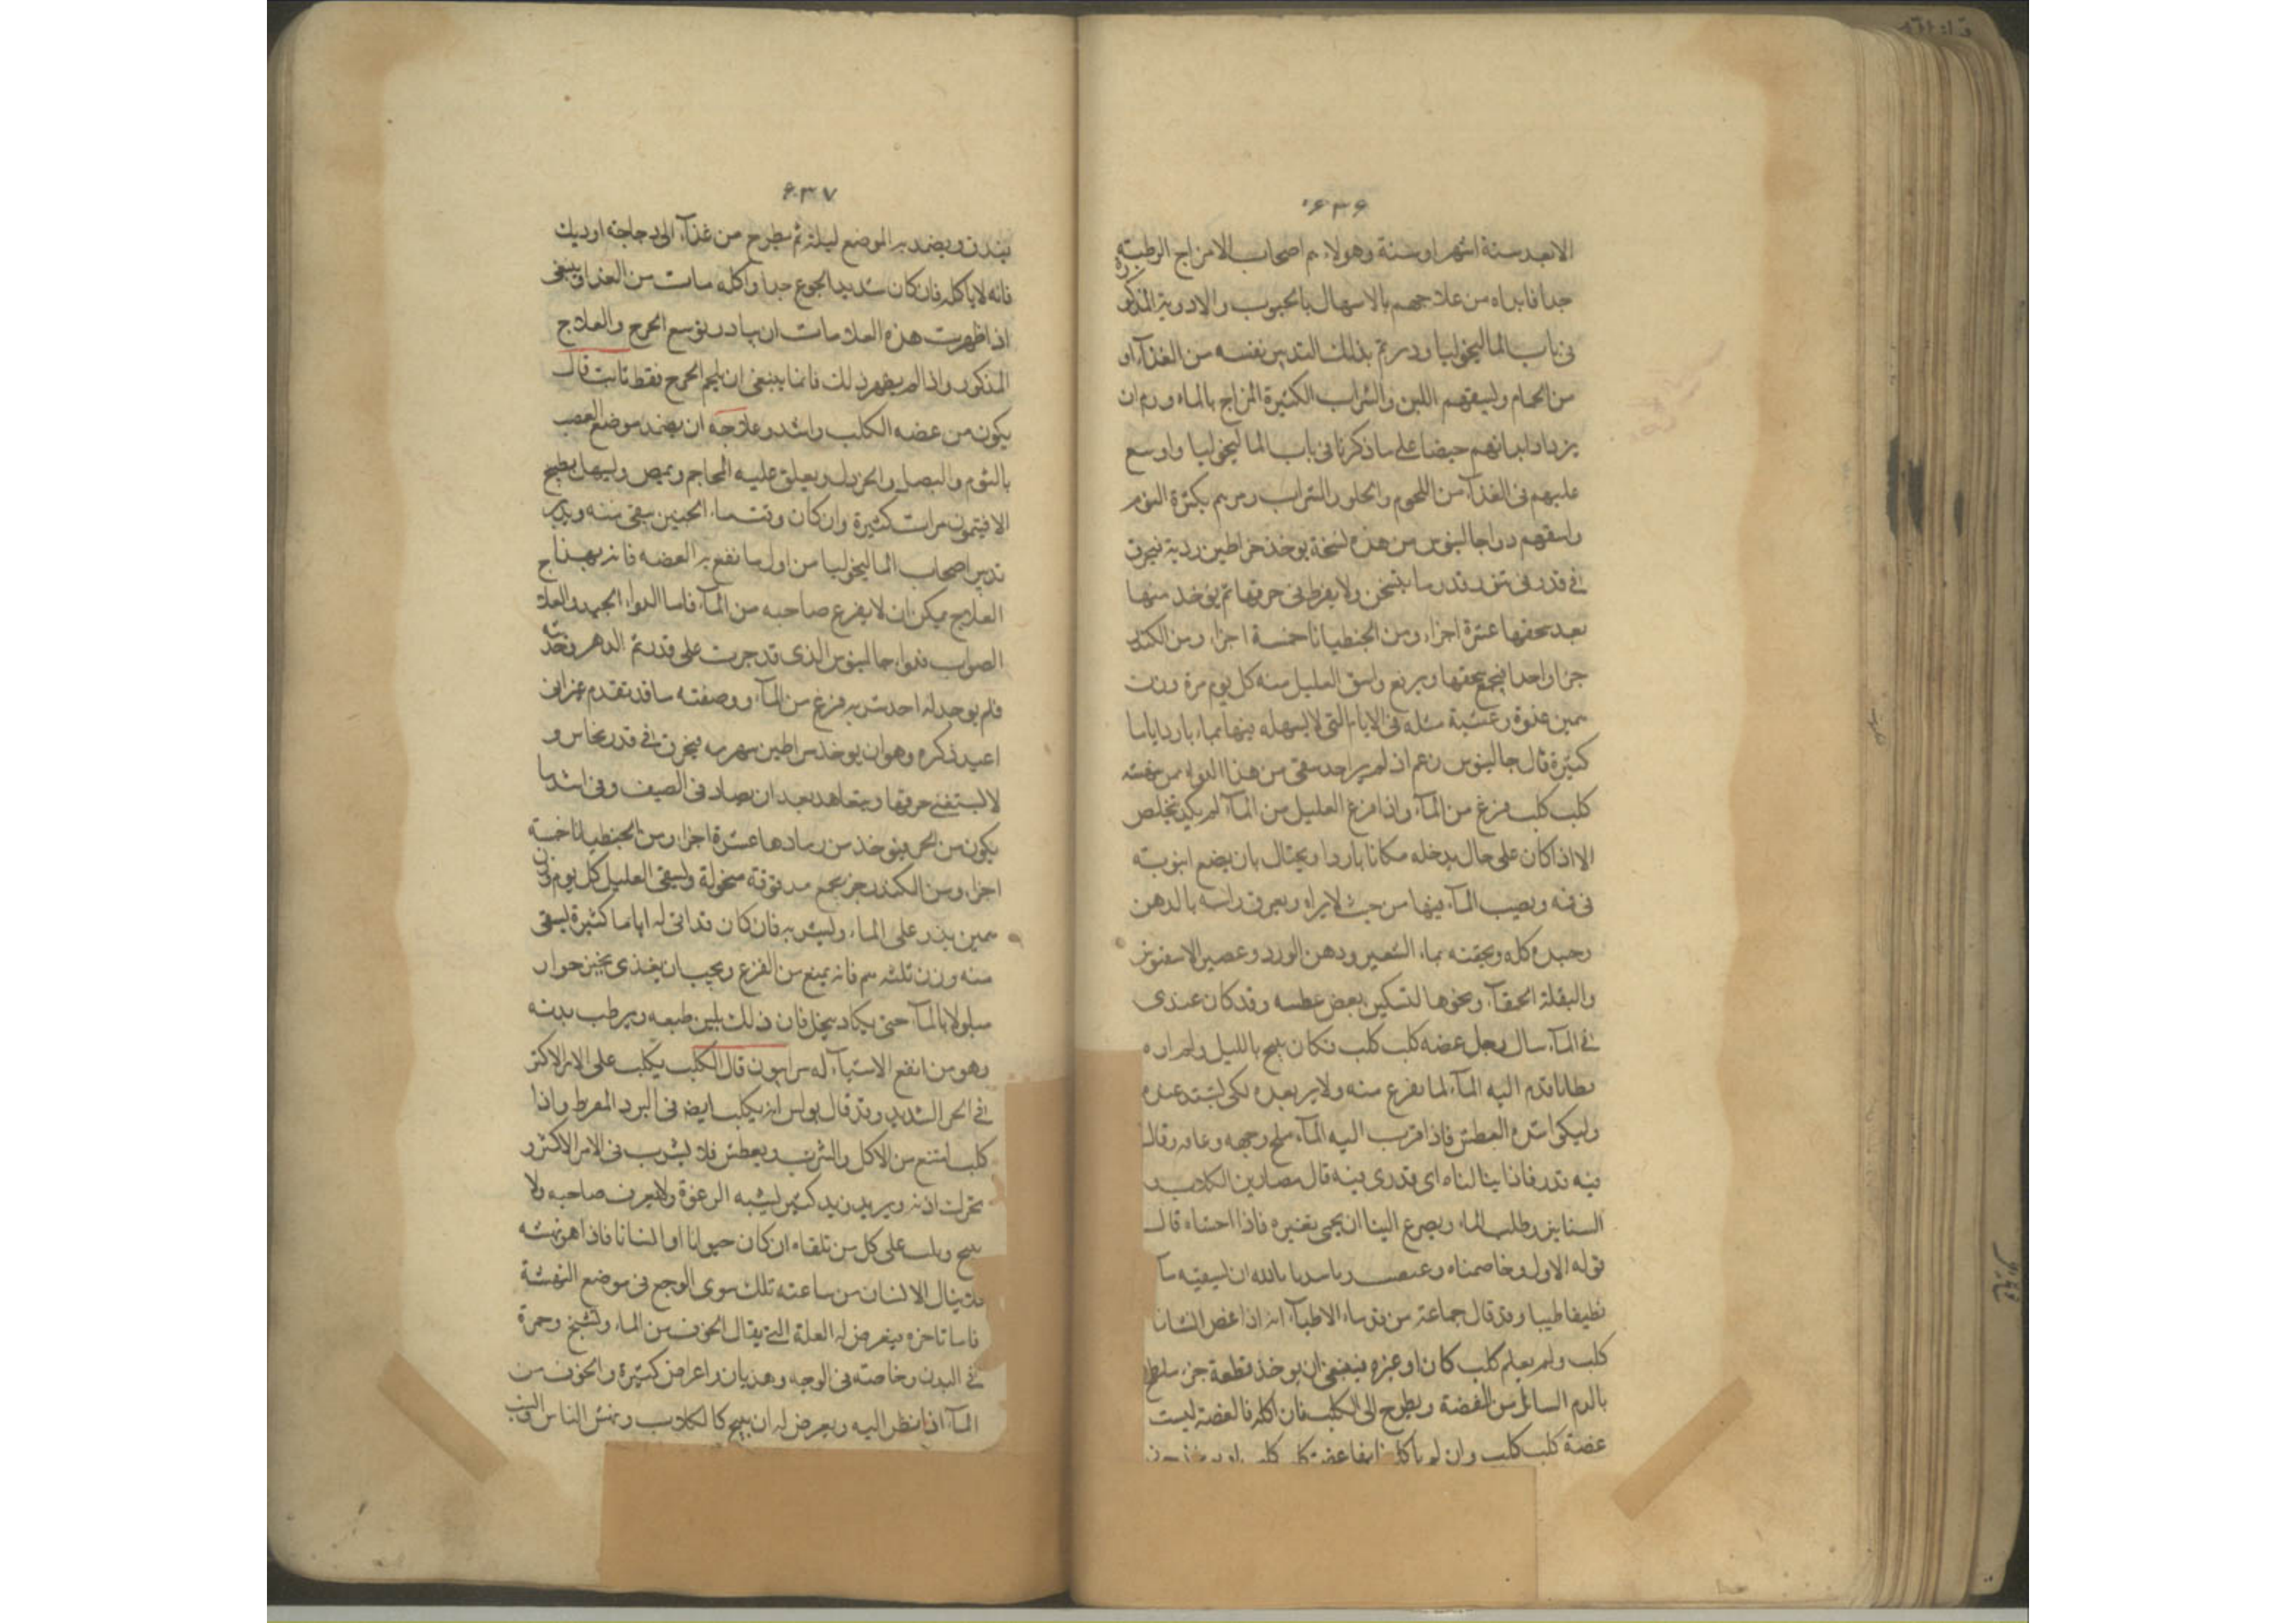 ۶۳۶
الا بعد ستة اشهر او سنة وهولاء هم اصحاب الامزاج الرطبة
جدا فابداه من علاجهم بالاسهال بالحبوب والادوية المذكورة
فى باب الماليخوليا ودبرتم بذلك التدبير نفسه من الغذآء او
من الحمام وليسقهم اللبن والشراب الكثيرة المزاج بالماء ورم ان
يزداد ابدانهم على ما ذكرنا فى باب الماليخوليا واوسع
عليهم فى الغذآء من اللحوم والحلو والشراب ومرهم بكثرة النوم
واسقهم دواء جالينوس من هذه نسخة يوخذ خراطين فيحرق
فى قدر فى تنور قدر ما يتسخن ولا يفرط فى حرقها ثم يوخذ منها
بعد سحقها عشرة اجزاء ومن الجنطيانا خمسة اجزاء ومن الكندر
جزا واحدا فيجمع بسحقها ويرفع واسق العليل منه كل يوم مرة وزن
غدوة وعشية مثله فى الايام التى لا يسهله فيها بماء بارد اياما
كثيرة قال جالينوس زعم انه لم ير احد سقى من هذا الدوآء ممن نهشه
كلب كلب فزع من المآء واذا فزع العليل من المآء لم يكد يتخلص
الا اذا كان على حال يدخله مكانا باردا ويحتال بان يضع انبوبة
فى فمه ويصب المآء فيها من حيث لا يراه ويعرق راسه بالدهن
وجسده كله ويحقنه بماء الشعير ودهن الورد وعصير الاسفيوش
والبقلة الحمقآء ونحوها لتسكين بعض عطشه وقد كان عندى
فى المآء سال رجل عضه كلب كلب فكان ينبح بالليل ولم اره
قدم اليه المآء لما يفزع منه ولا يريعده لكى يشتد عنده
وليكن اشره العطش فاذا قرب اليه المآء وجهه وعافه وقال
فيه قذر فاذا سالناه اى قذر فيه قال مصارين الكلاب و
السنانير وطلب الماء ويضرع الينا ان يجى بغيره فاذا احسناه قال
قوله الاول وخاصمناه وغضب بالله ان ليسقيه مآ
نظيفا طيبا وقد قال جماعة من قدماء الاطبآء انه اذا عض انسان
كلب ولم يعلم كلب كان او غيره فينبغى ان يوخذ قطعة خبز ملطخ
بالدم السائل من العضة ويطرح الى الكلب فان اكله فالعضة ليست
عضة كلب كلب وان لم ياكله فانها عضة كلب كلب
۶۳۷
يندق ويضمد به الموضع ليلة ثم يطرح من غدآء الى دجاجة او ديك
فانه لا ياكله فان كان شديد الجوع جدا واكله مات من الغد فينبغى
اذا ظهرت هذه العلامات ان يبادر بتوسع الجرح والعلاج
المذكور واذا لم يظهر ذلك فانما ينبغى ان يلحم الجرح فقط ثابت قال
يكون من عضه الكلب واشد وعلاجه ان يضمد موضع العض
بالثوم والبصل والخردل ويعلق عليه المحاجم ويمص ويسهل بطبيخ
الافتيمون مرات كثيرة وان كان وقت مآء الجبن سقى منه ويدبر
تدبير اصحاب الماليخوليا من اول ما نفع به العضه فانه بهذا
العلاج يمكن ان لا يفزع صاحبه من المآء فاما الدوآء الجيد والعلاج
الصواب فدوآء جالينوس الذى قد جربت على قديم الدهر وحديثه
فلم يوجد له احد شربه فزع من المآء ووصفته ما قد تقدم غير انى
اعيد ذكره وهو ان يوخذ سراطين نهرية فيحرق فى قدر نحاس و
لا يستقصى حرقها ويتعاهد بعد ان يصاد فى الصيف وفى اشد ما
يكون من الحر فيوخذ من رمادها عشرة اجزاء ومن الجنطيانا خمسة
اجزاء ومن الكندر جز يجمع مدقوقة منخولة ويسقى العليل كل يوم وزن
يذر على الماء ويشربه فان كان قد اتى له اياما كثيرة يسقى
منه وزن ثلثه فانه يمنع من الفزع ويجب ان يغذى بخبز حوار
مبلولا بالمآء حتى يكاد ينحل فان ذلك يلين طبعه ويرطب بدنه
وهو من انفع الاشيآء له سرابيون قال الكلب يكلب على الامر الاكثر
فى الحر الشديد وقد قال بولس انه يكلب ايضه فى البرد المفرط واذا
كلب امتنع من الاكل والشرب ويعطش فلا يشرب فى الامر الاكثر و
تحرك اذنه ويزبد زبد كثير يشبه الرغوة ولا يعرف صاحبه ولا
ينبح ويثب على كل من تلقاه ان كان حيوانا او انسانا فاذا هو نهشه
فلا ينال الانسان من ساعته تلك سوى الوجع فى موضع النهشة
فاما تاخره فيعرض له العلة التى يقال الخوف من الماء وتشنج وحمرة
فى البدن وخاصته فى الوجه وهذيان واعراض كثيرة والخوف من
المآء اذا نظر اليه ويعرض له ان ينبح كالكلاب ونهش الناس